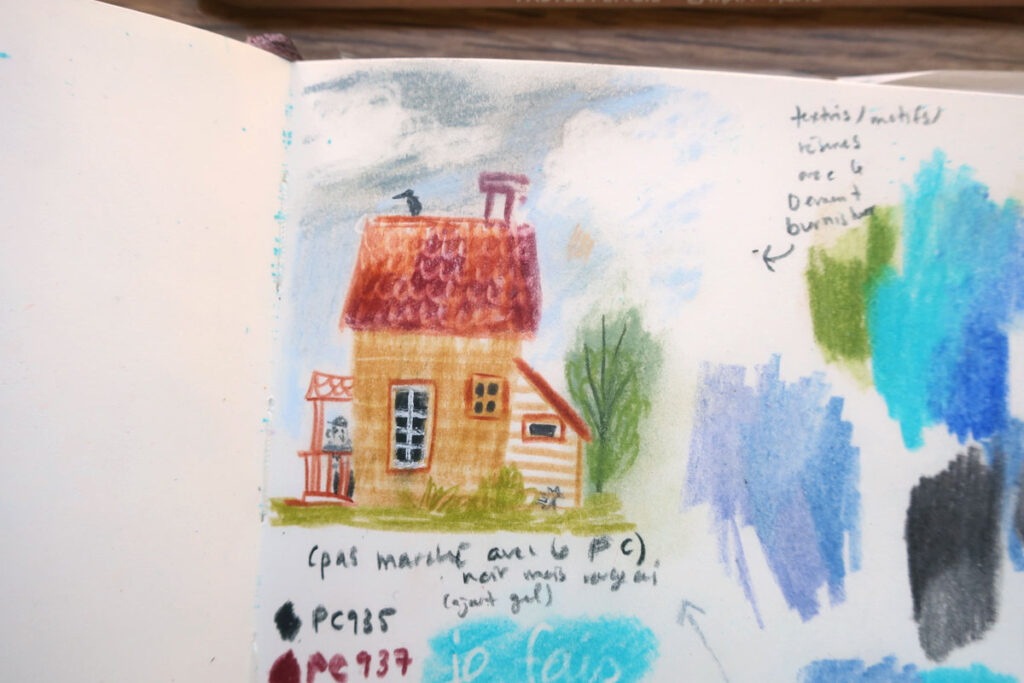 textures/motifs/
réserves
avec le
Derwent
burnisher
(pas marché avec le PC)
noir mais rouge oui
(ajout gel)
PC935
PC937
je fais